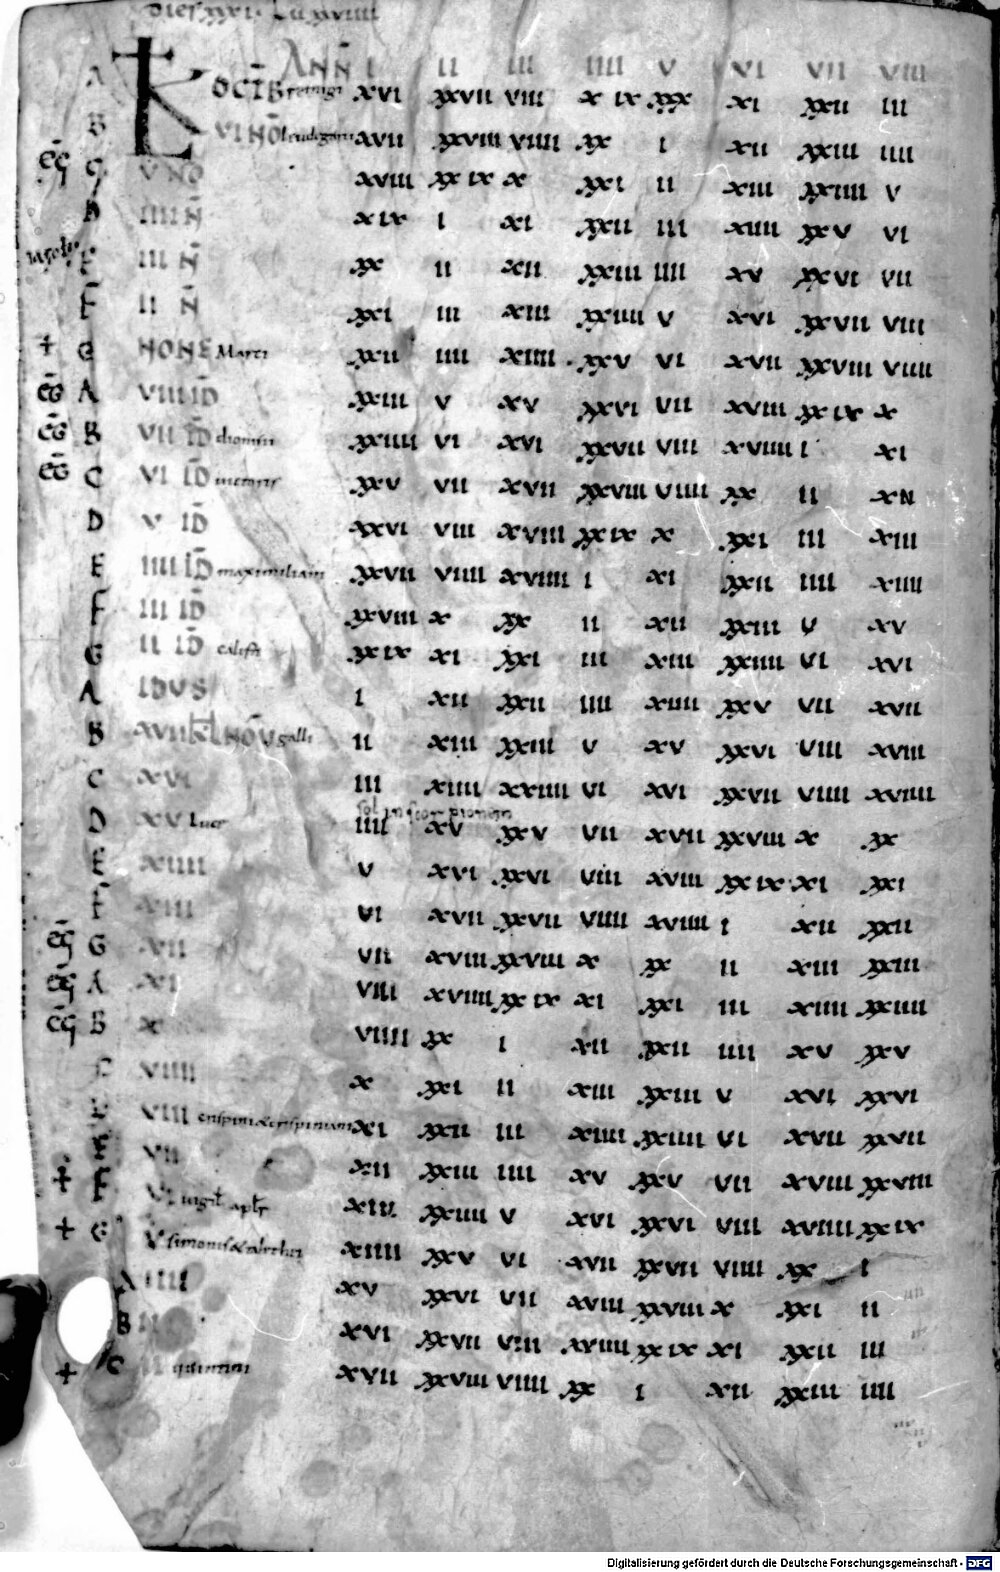 dies xxxi. Lu xxviiii
ANN̄ I II III IIII V VI VII VIII
A K OCTB remigi xvi xxvii viii x ix xxx xi xxii iii
B VI NO leudegarii xvii xxviii viiii xx i xii xxiii iiii
eḡ C V NO xviii xx ix x xxi ii xiii xxiiii v
D IIII N̄ xix i xi xxii iii xiiii xxv vi
E III N̄ xx ii xii xxiii iiii xv xxvi vii
F II N̄ xxi iii xiii xxiiii v xvi xxvii viii
+ G NONE Marci xxii iiii xiiii xxv vi xvii xxviii viiii
eḡ A VIIII ID̄ xxiii v xv xxvi vii xviii xx ix x
eḡ B VII ID̄ dionisii xxiiii vi xvi xxvii viii xviiii i xi
eḡ C VI ID̄ xxv vii xvii xxviii viiii xx ii xii
D V ID̄ xxvi viii xviii xx ix x xxi iii xiii
E IIII ID̄ maximiliani xxvii viiii xviiii i xi xxii iiii xiiii
F III ID̄ xxviii x xx ii xii xxiii v xv
G II ID̄ calisti xx ix xi xxi iii xiii xxiiii vi xvi
A IDVS i xii xxii iiii xiiii xxv vii xvii
B XVII KL NOV galli ii xiii xxiii v xv xxvi viii xviii
C XVI iii xiiii xxiiii vi xvi xxvii viiii xviiii
sol in scorpionem
D XV Luce iiii xv xxv vii xvii xxviii x xx
E XIIII v xvi xxvi viii xviii xx ix xi xxi
F XIII vi xvii xxvii viiii xviiii i xii xxii
eḡ G XII vii xviii xxviii x xx ii xiii xxiii
eḡ A XI viii xviiii xx ix xi xxi iii xiiii xxiiii
eḡ B X viiii xx i xii xxii iiii xv xxv
C VIIII x xxi ii xiii xxiii v xvi xxvi
VIII crispini & crispiniani xi xxii iii xiiii xxiiii vi xvii xxvii
E VII xii xxiii iiii xv xxv vii xviii xxviii
+ F VI vigil apl xiii xxiiii v xvi xxvi viii xviiii xx ix
+ G V simonis & xiiii xxv vi xvii xxvii viiii xx i
A IIII xv xxvi vii xviii xxviii x xxi ii
B III xvi xxvii viii xviiii xx ix xi xxii iii
+ C II quintini xvii xxviii viiii xx i xii xxiii iiii
Digitalisierung gefördert durch die Deutsche Forschungsgemeinschaft - DFG